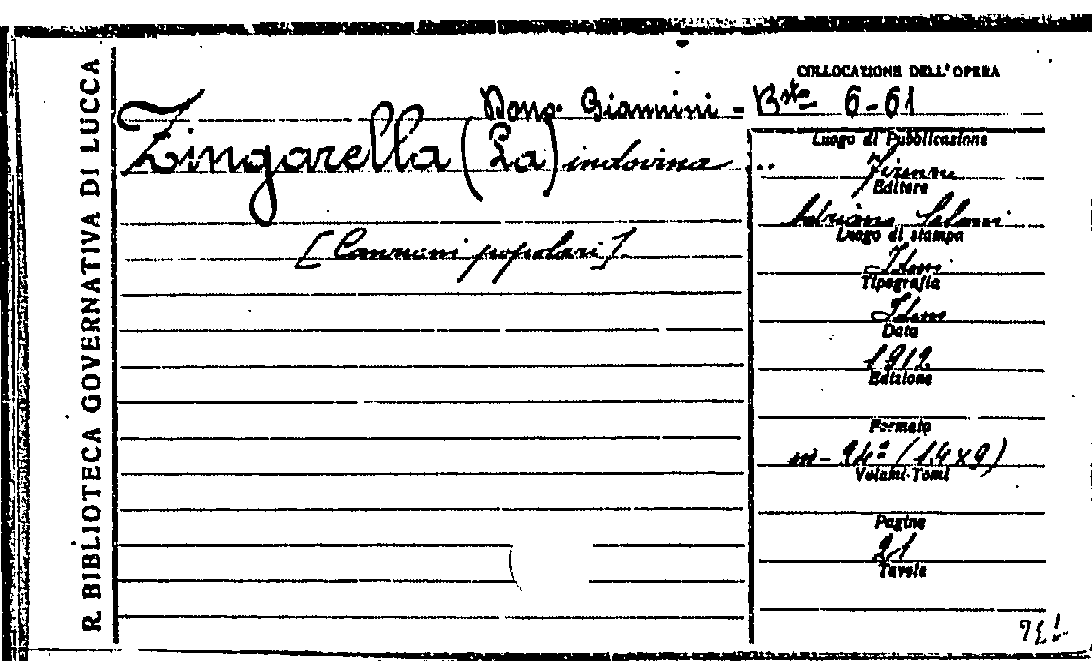 R. BIBLIOTECA GOVERNATIVA DI LUCCA
COLLOCATIONE DELL'OPERA
Dono Giannini - Bsta 6-61
Zingarella (La) indovina ...
[Canzoni popolari].
Luogo di Pubblicazione
Firenze
Editore
Adriano Salani
Luogo di stampa
Idem
Tipografia
Idem
Data
1912
Edizione
Formato
in-24º (14x9)
Volumi-Tomi
Pagine
21
Tavole